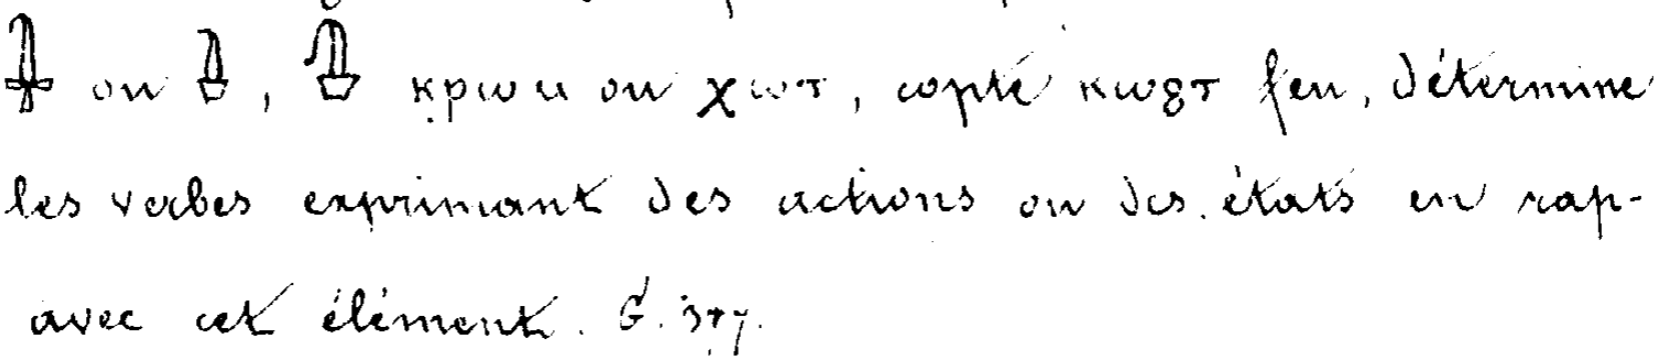 ou , ⲕⲣⲱⲙ ou ⲭⲱⲧ, copte ⲕⲱϩⲧ feu, détermine
les verbes exprimant des actions ou des états en rap-
avec cet élément. G. 377.